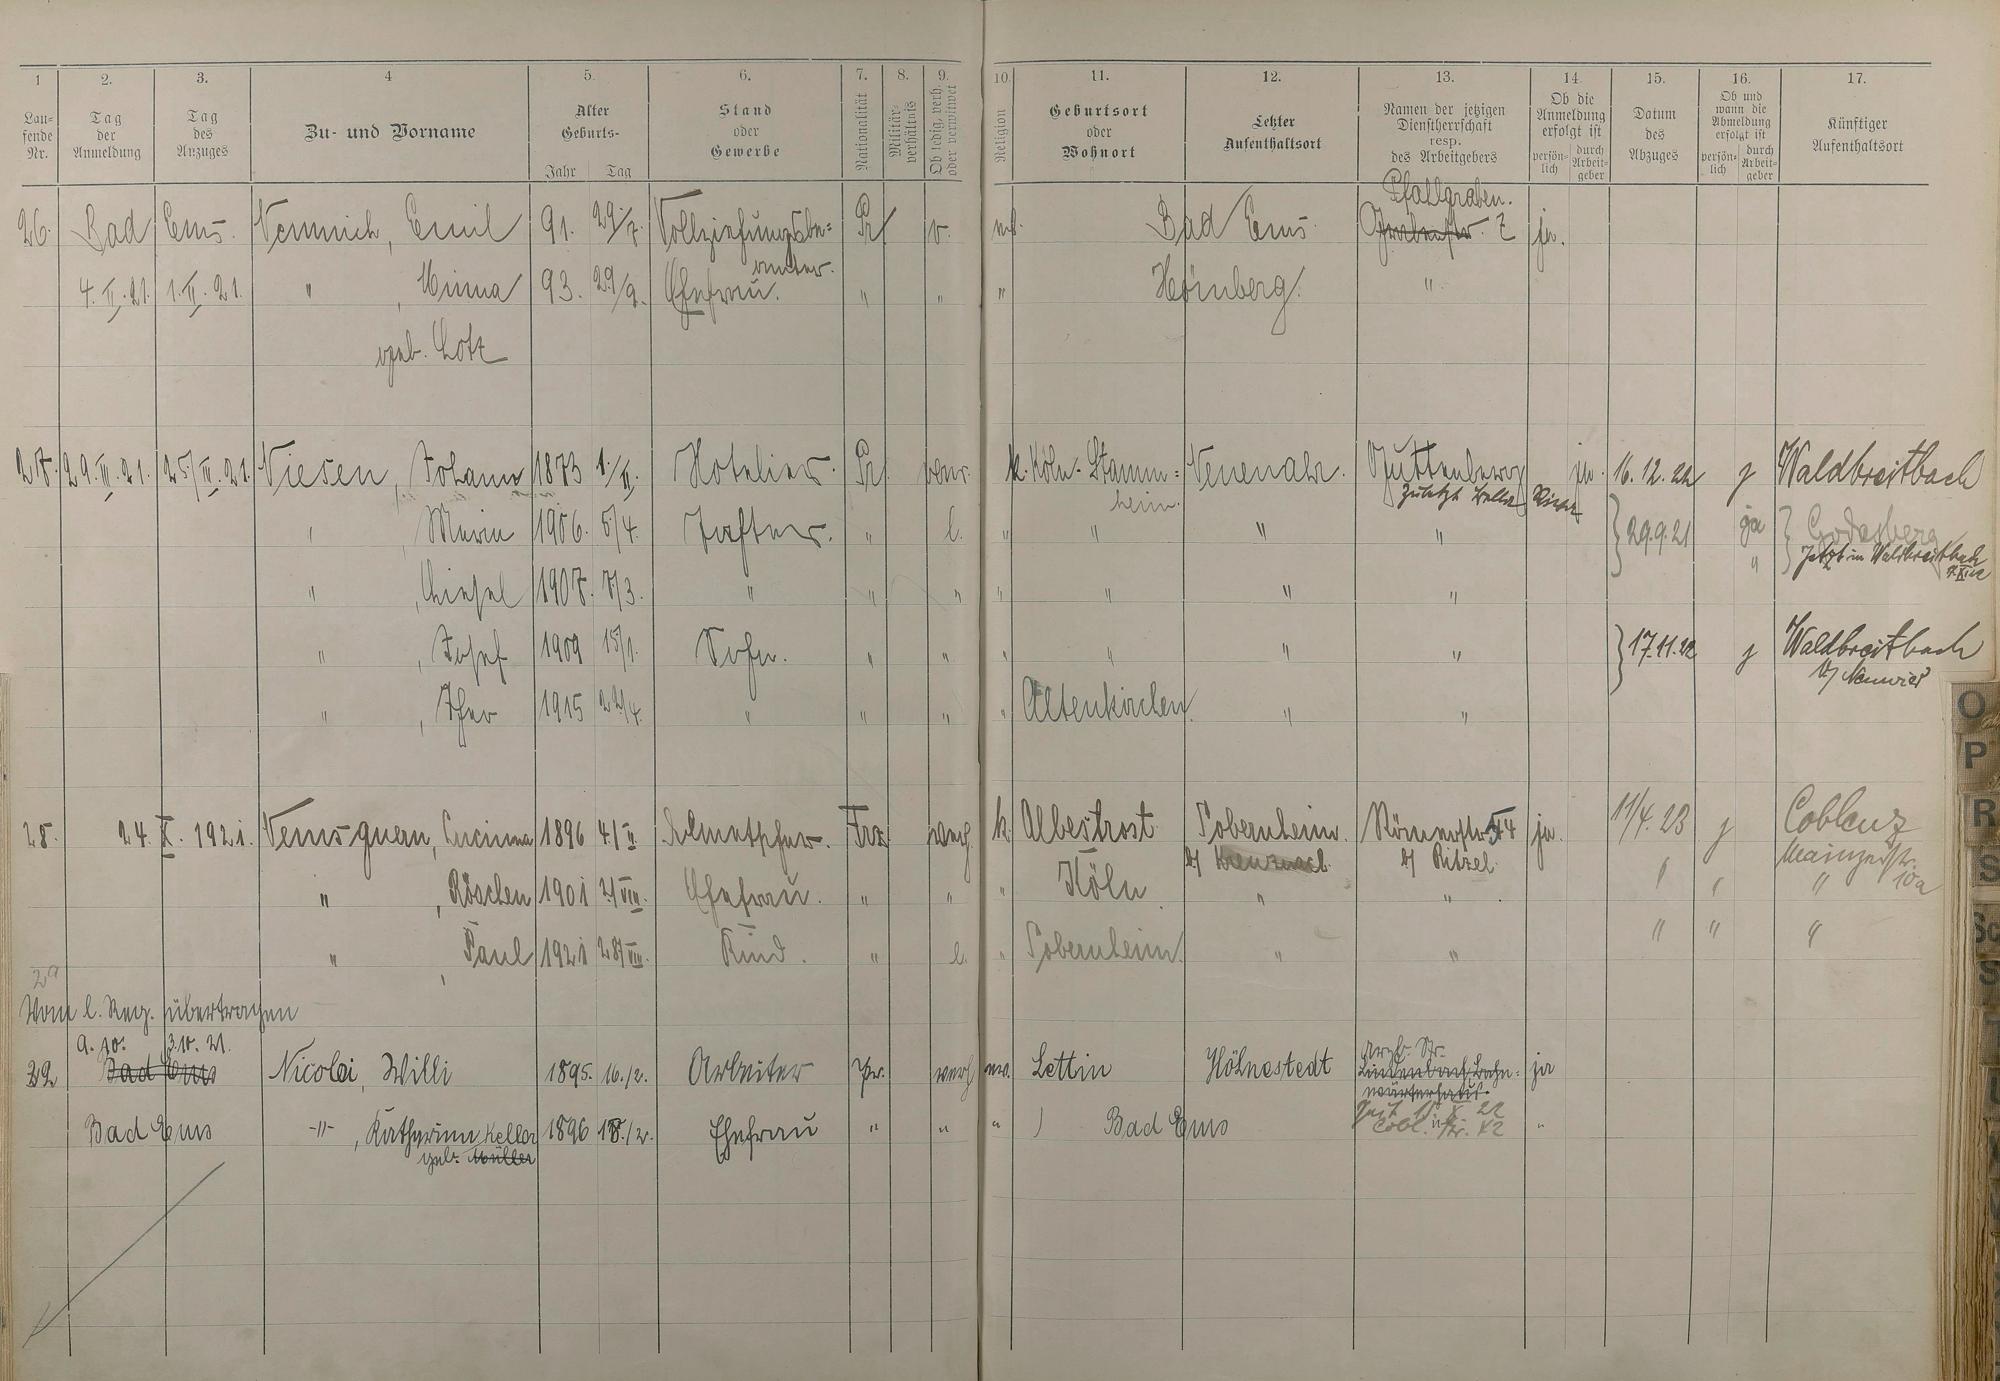 1 2. 3. 4 5. 6. 7. 8. 9. 10. 11. 12. 13. 14. 15. 16. 17.
Lau-
fende
Nr.
Tag
der
Anmeldung
Tag
des
Anzuges
Zu- und Vorname
Alter
Geburts-
Jahr Tag
Stand
oder
Gewerbe
Nationalität
Militär-
verhältnis
Ob ledig, verh.
oder verwitwet
Religion
Geburtsort
oder
Wohnort
Letzter
Aufenthaltsort
Namen der jetzigen
Dienstherrschaft
resp.
des Arbeitgebers
Ob die
Anmeldung
erfolgt ist
persön-
lich
durch
Arbeit-
geber
Datum
des
Abzuges
Ob und
wann die
Abmeldung
erfolgt ist
persön-
lich
durch
Arbeit-
geber
Künftiger
Aufenthaltsort
Pfahlgraben.
26. Bad Ems. Nemnich, Emil 91. 29/7. Vollziehungsbe= Pr v. Bad Ems. 2 ja.
amter.
4. II. 21. 1. II. 21. " , Minna 93. 29/9. Ehefrau. " " " "
geb. Lotz
27. 29. III. 21. 25/III. 21. Niesen, Johann 1873 1/II. Hotelier. Pr verw. k. Köln-Stamm= ja. 16.12.22 j Waldbreitbach
heim. zuletzt
" 1906. 5/4. Tochter. " l. " " " " 29.9.21 ja Godesberg
Jetzt in Waldbreitbach
" , Liesel 1907. 7/3. " " " " " " "
" , Josef 1909 15/1. Sohn. " " " " " " 17.11.22 j Waldbreitbach
b/ Neuwied
" , 1915 22/4. " " " " Altenkirchen. " "
28. 24. X. 1921. 1896 4/II. Dolmetscher. Frz verh. k. Albestrost Sobernheim. Römerstr. 54 ja. 11/4. 23 j Coblenz
b/ Kreuznach b/ Ritzel Mainzerstr.
" , Röschen 1901 2/VIII. Ehefrau. " " " Köln " " " 10a
" , Paul 1921 28/VIII. Kind. " l. " Sobernheim. " " " " "
29
Vom l. Reg. übertragen
9. 10. 3.10. 21.
Bad Ems Nicolai, Willi 1895. 16./2. Arbeiter Pr. verh ev. Lettin Höhnstedt ja
Lindenbach, Bahn=
wärterhaus.
Bad Ems -"- , Katharina Keller 1896 18./2. Ehefrau " " " Bad Ems "
geb. Müller
O
P
R
S
Sc
S
T
U